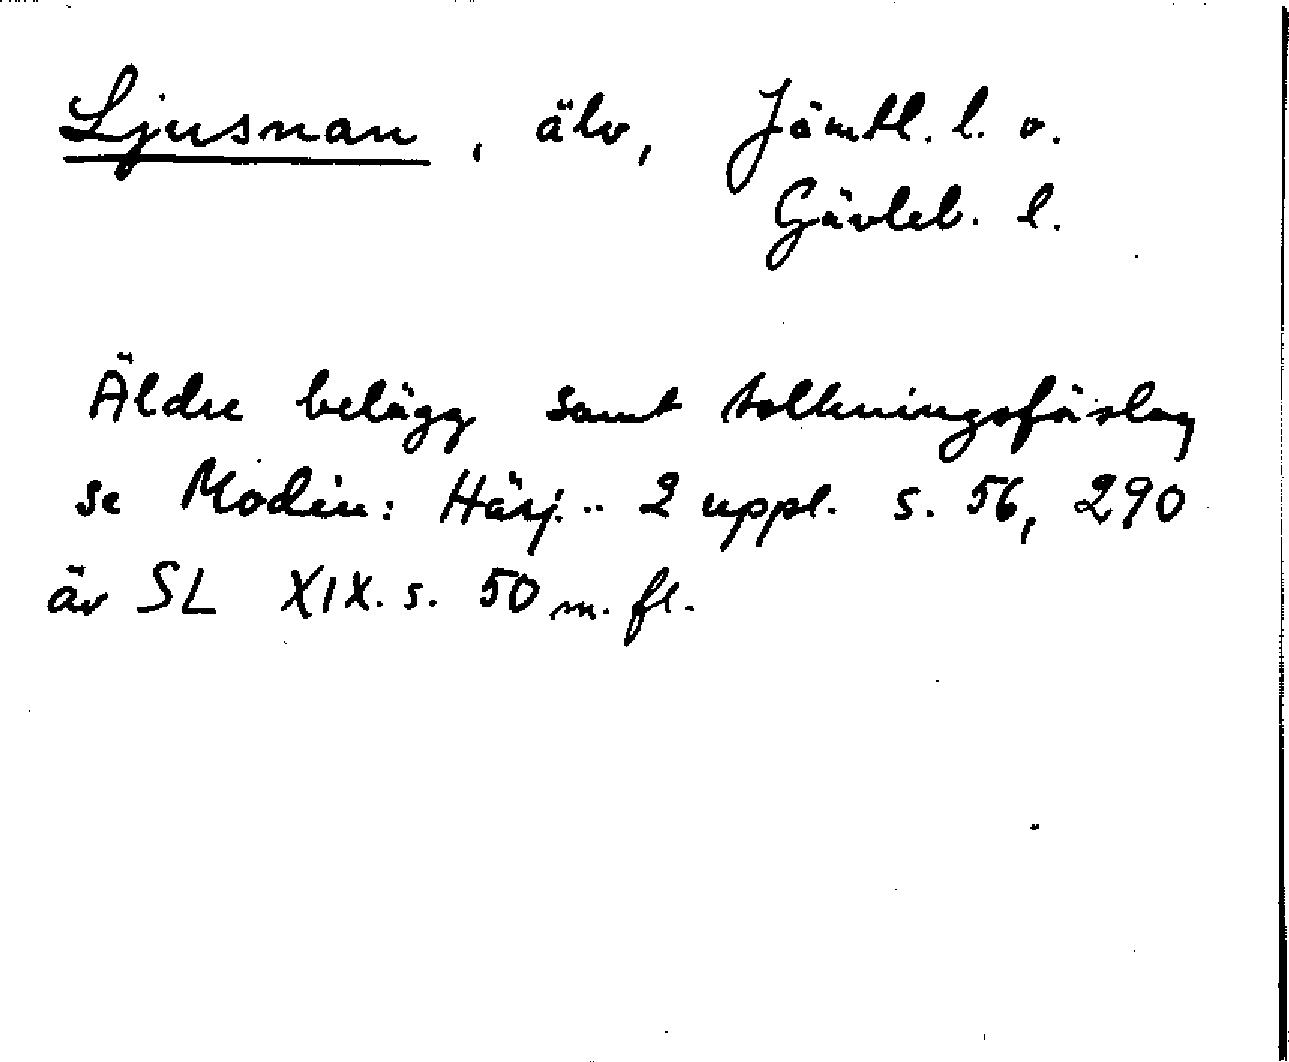 Ljusnan, älv, Jämtl. l. o.
Gävleb. l.
Äldre belägg samt tolkningsförslag
se Modin: Härj. .. 2 uppl. s. 56, 290
äv SL XIX. s. 50 m. fl.